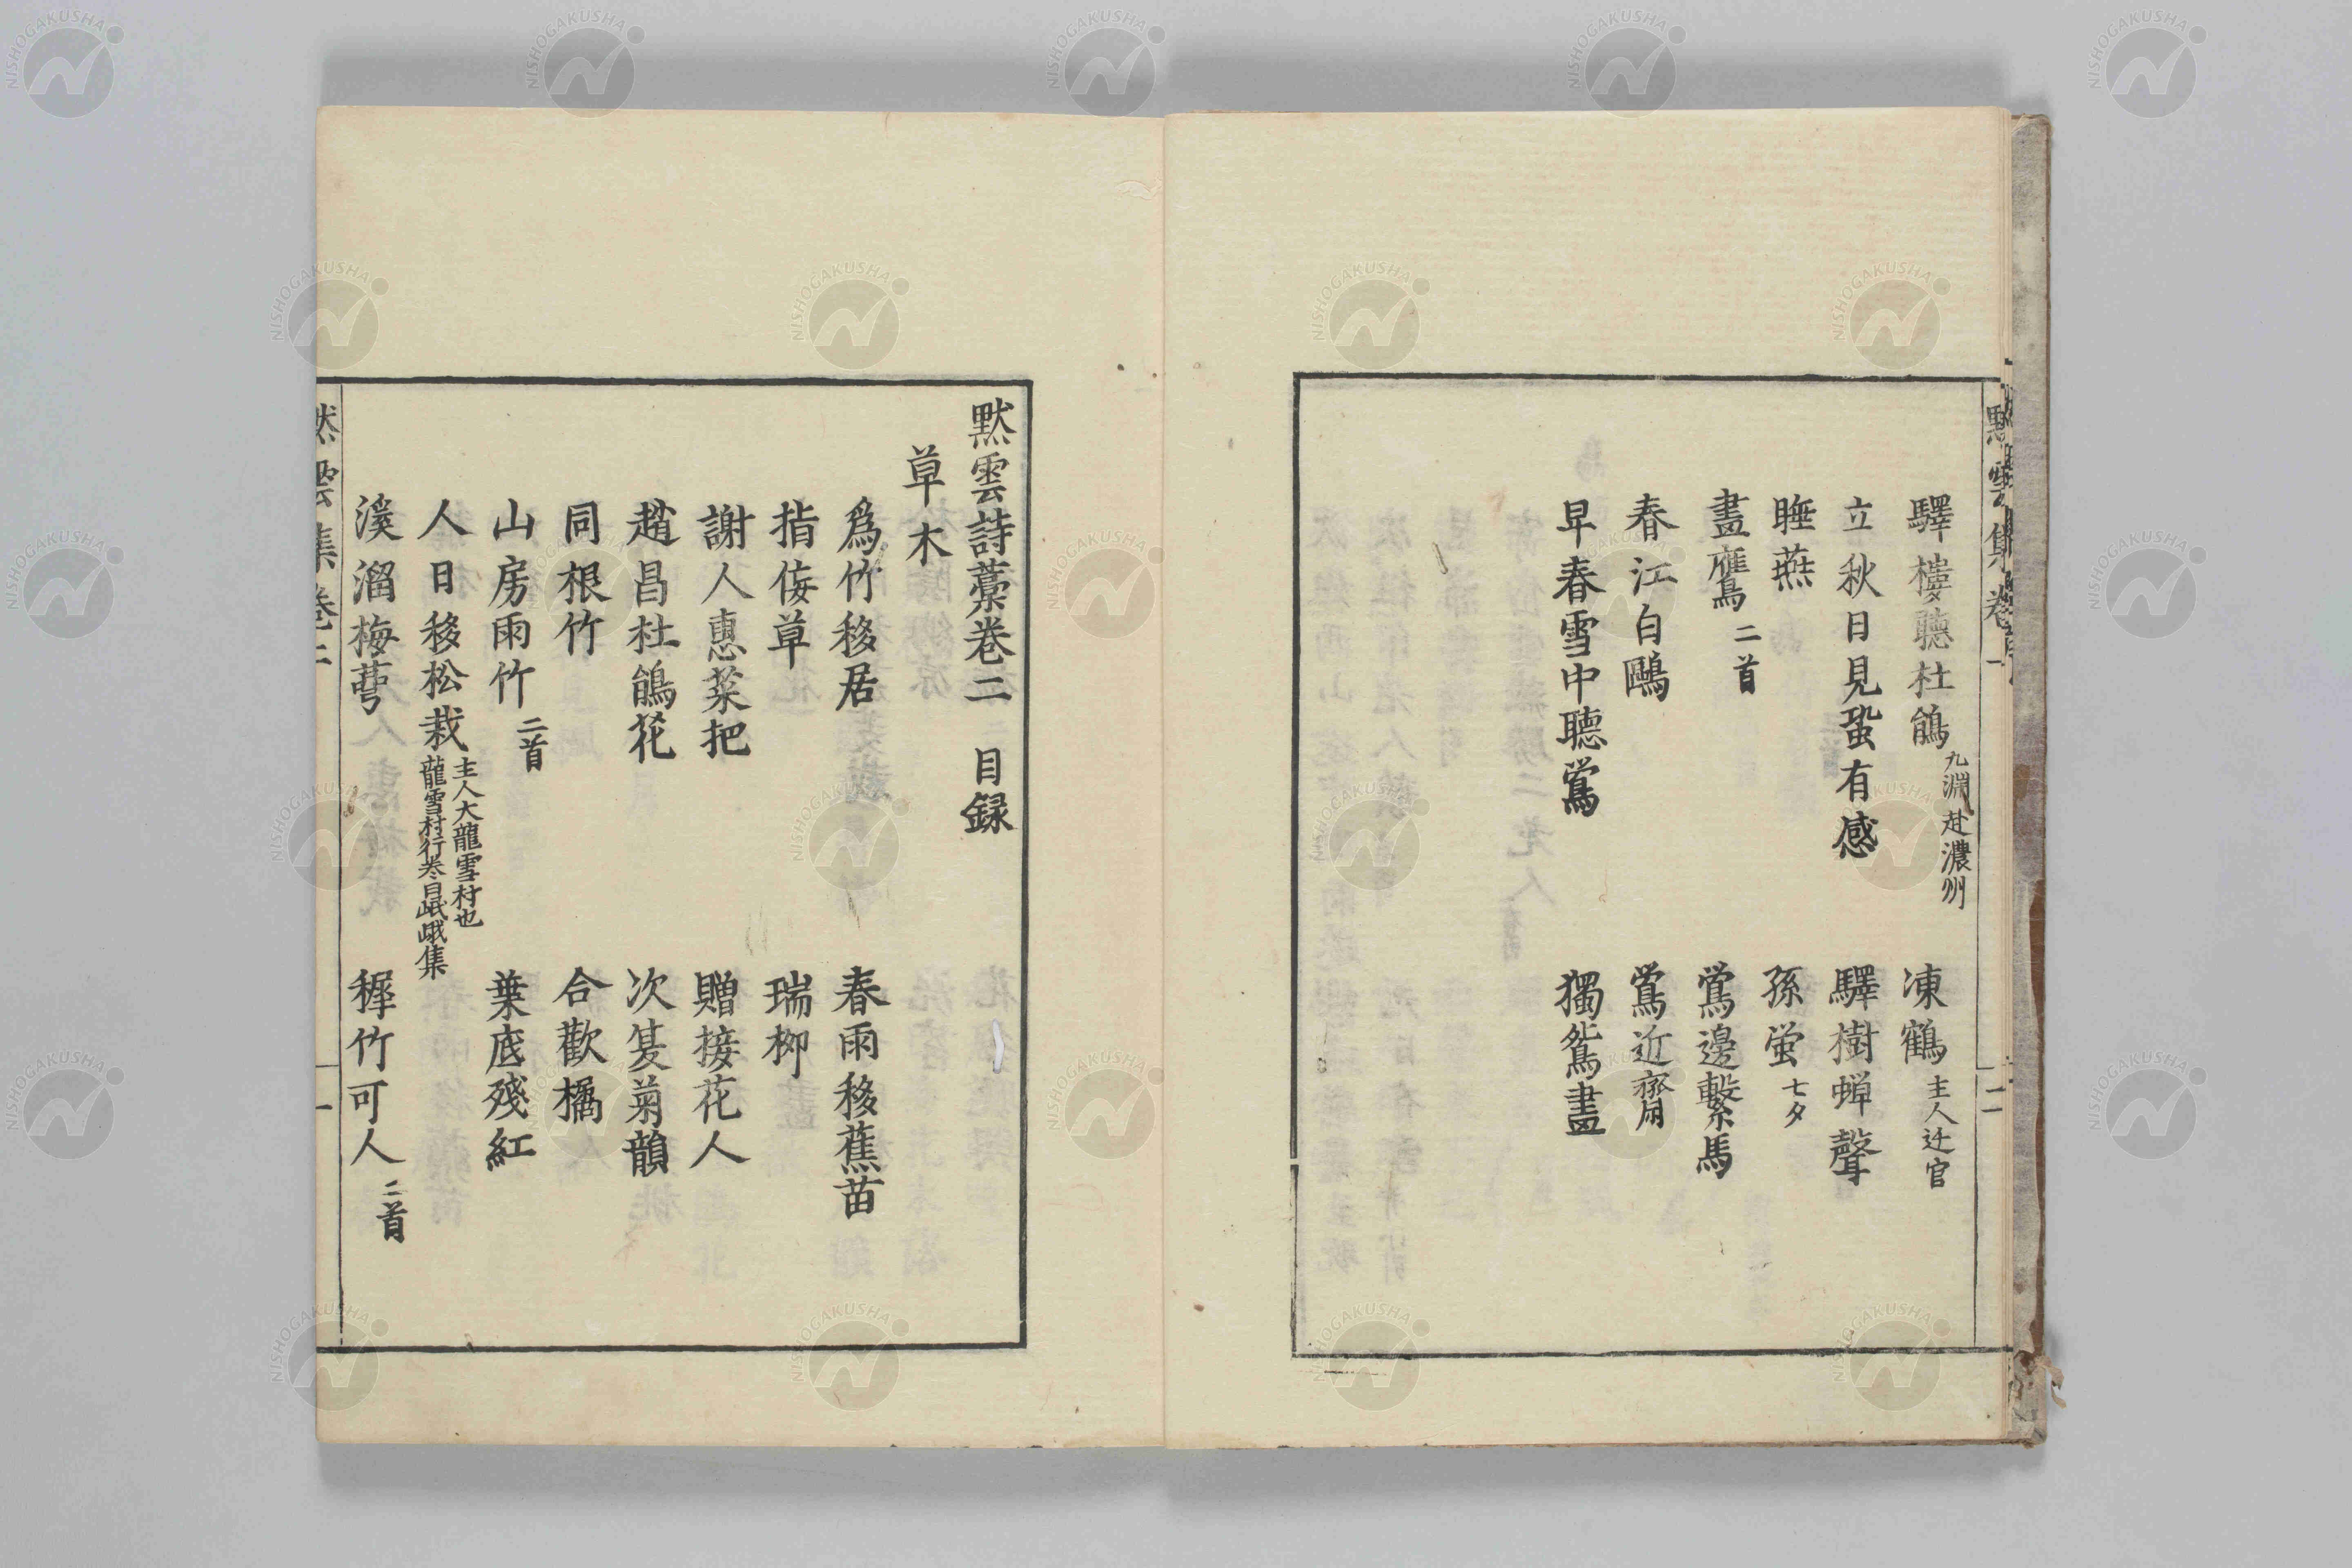 驛樓聽杜鵑 九淵赴濃州 凍鶴 主人辷官
立秋日見蛩有感 驛樹蟬聲
睡燕 孫蛍 七夕
畫鴈 二首 鴬邊繫馬
春江白鷗 鴬近齋用
早春雪中聽鴬 獨鴛畫
默雲集卷一
二
默雲詩藁卷二 目録
草木
爲竹移居 春雨移蕉苗
指佞草 瑞柳
謝人惠菜把 贈接花人
趙昌杜鵑花 次笈菊韻
同根竹 合歡橘
山房雨竹 二首 葉底殘紅
人日移松栽 主人大龍雪村也
龍雪村行卷曰岷峨集
溪溜梅萼 穉竹可人 二首
默雲集卷二
一
NISHOGAKUSHA